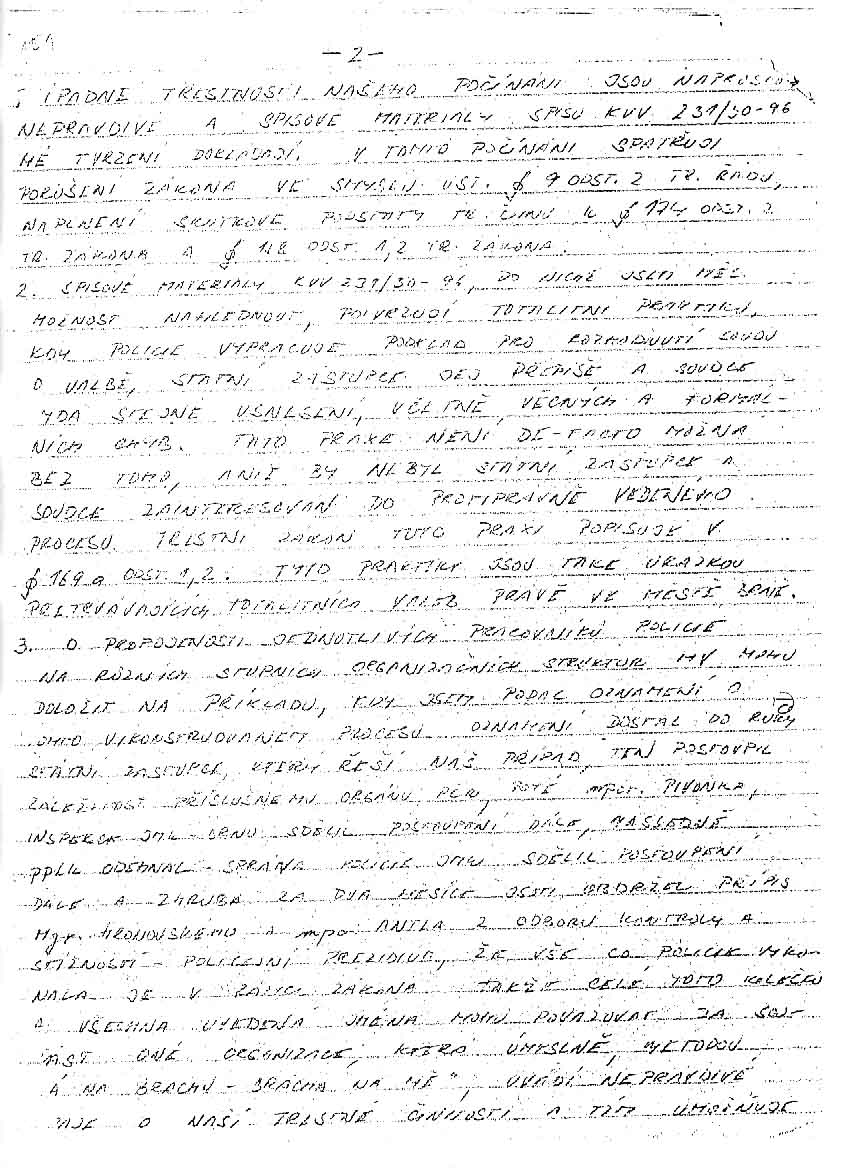 159
- 2 -
PADNÉ TRESTNOSTI NAŠEHO POČÍNÁNÍ JSOU NAPROSTO
NEPRAVDIVÉ A SPISOVÉ MATERIÁLY SPISU KVV 231/30-96
MÉ TVRZENÍ DOKLÁDAJÍ. V TOMTO POČÍNÁNÍ SPATŘUJI
PORUŠENÍ ZÁKONA VE SMYSLU UST. § 9 ODST. 2 TR. ŘÁDU,
NAPLNĚNÍ SKUTKOVÉ PODSTATY TR. ČINU § 174 ODST. 2
TR. ZÁKONA A § ODST. 1,2 TR. ZÁKONA.
2. SPISOVÉ MATERIÁLY KVV 231/30-96, DO NICHŽ JSEM MĚL
MOŽNOST NAHLÉDNOUT, POTVRZUJÍ TOTALITNÍ PRAKTIKU,
KDY POLICIE VYPRACUJE PODKLAD PRO ROZHODNUTÍ SOUDU
O VAZBĚ, STÁTNÍ ZÁSTUPCE JEJ PŘEPÍŠE A SOUDCE
VYDÁ STEJNÉ USNESENÍ, VČETNĚ VĚCNÝCH A FORMÁL-
NÍCH CHYB. TATO PRAXE NENÍ DE-FACTO MOŽNÁ
BEZ TOHO, ANIŽ BY NEBYL STÁTNÍ ZÁSTUPCE A
SOUDCE ZAINTERESOVÁN DO PROTIPRÁVNĚ VEDENÉHO
PROCESU. TRESTNÍ ZÁKON TUTO PRAXI POPISUJE V
§ 169a ODST. 1,2. TYTO PRAKTIKY JSOU TAKÉ UKÁZKOU
PŘETRVÁVAJÍCÍCH TOTALITNÍCH VAZEB PRÁVĚ VE MĚSTĚ BRNĚ.
3. O PROPOJENOSTI JEDNOTLIVÝCH PRACOVNÍKŮ POLICIE
NA RŮZNÝCH STUPNÍCH ORGANIZAČNÍCH STRUKTUR MV MOHU
DOLOŽIT NA PŘÍKLADU, KDY JSEM PODAL OZNÁMENÍ O
OMTO VYKONSTRUOVANÉM PROCESU. OZNÁMENÍ DOSTAL DO RUKY
STÁTNÍ ZÁSTUPCE, KTERÝ ŘEŠÍ NÁŠ PŘÍPAD, TEN POSTOUPIL
ZÁLEŽITOST PŘÍSLUŠNÉMU ORGÁNU PČR, POTÉ mpor. PIVOŇKA,
INSPEKCE BRNO SDĚLIL POSTOUPENÍ DÁLE, NÁSLEDNĚ
pplk ODEHNAL - SPRÁVA POLICIE JMK SDĚLIL POSTOUPENÍ
DÁLE A ZHRUBA ZA DVA MĚSÍCE JSEM OBDRŽEL PŘÍPIS
Mgr. HRONOVSKÉHO A ANTLA Z ODBORU KONTROLY A
STÍŽNOSTÍ - POLICEJNÍ PREZIDIUM, ŽE VŠE CO POLICIE VYKO-
NALA JE V RÁMCI ZÁKONA. TAKŽE CELÉ TOTO KOLEČKO
A VŠECHNA UVEDENÁ JMÉNA MOHU POVAŽOVAT ZA SOU-
ÁST ONÉ ORGANIZACE, KTERÁ ÚMYSLNĚ, METODOU
Á NA BRÁCHU - BRÁCHA NA MĚ", UVÁDÍ NEPRAVDIVÉ
DAJE O NAŠÍ TRESTNÉ ČINNOSTI A TÍM UMOŽŇUJE